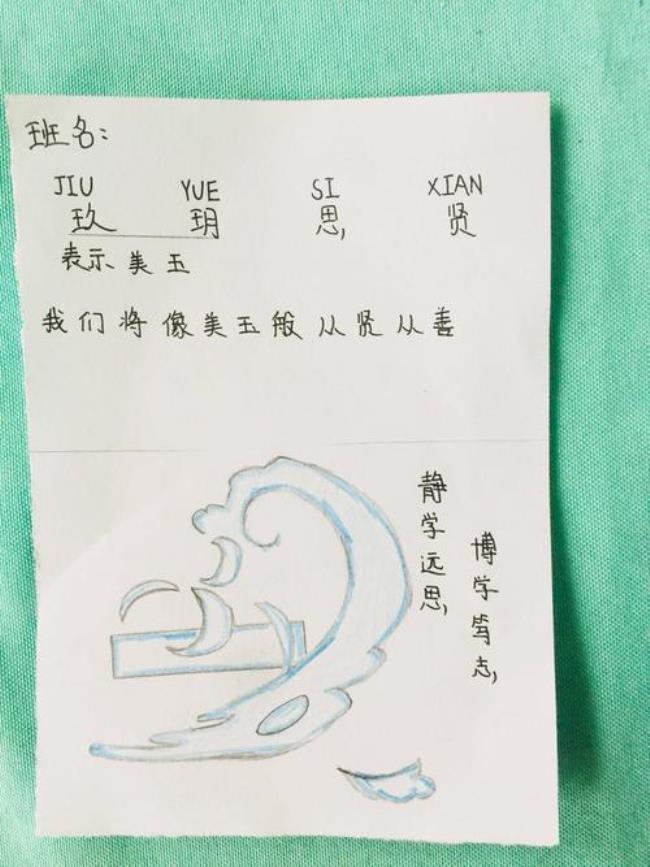 班名:
JIU YUE SI XIAN
玖 玥 思 贤
表示美玉
我们将像美玉般从贤从善
静学远思
博学笃志